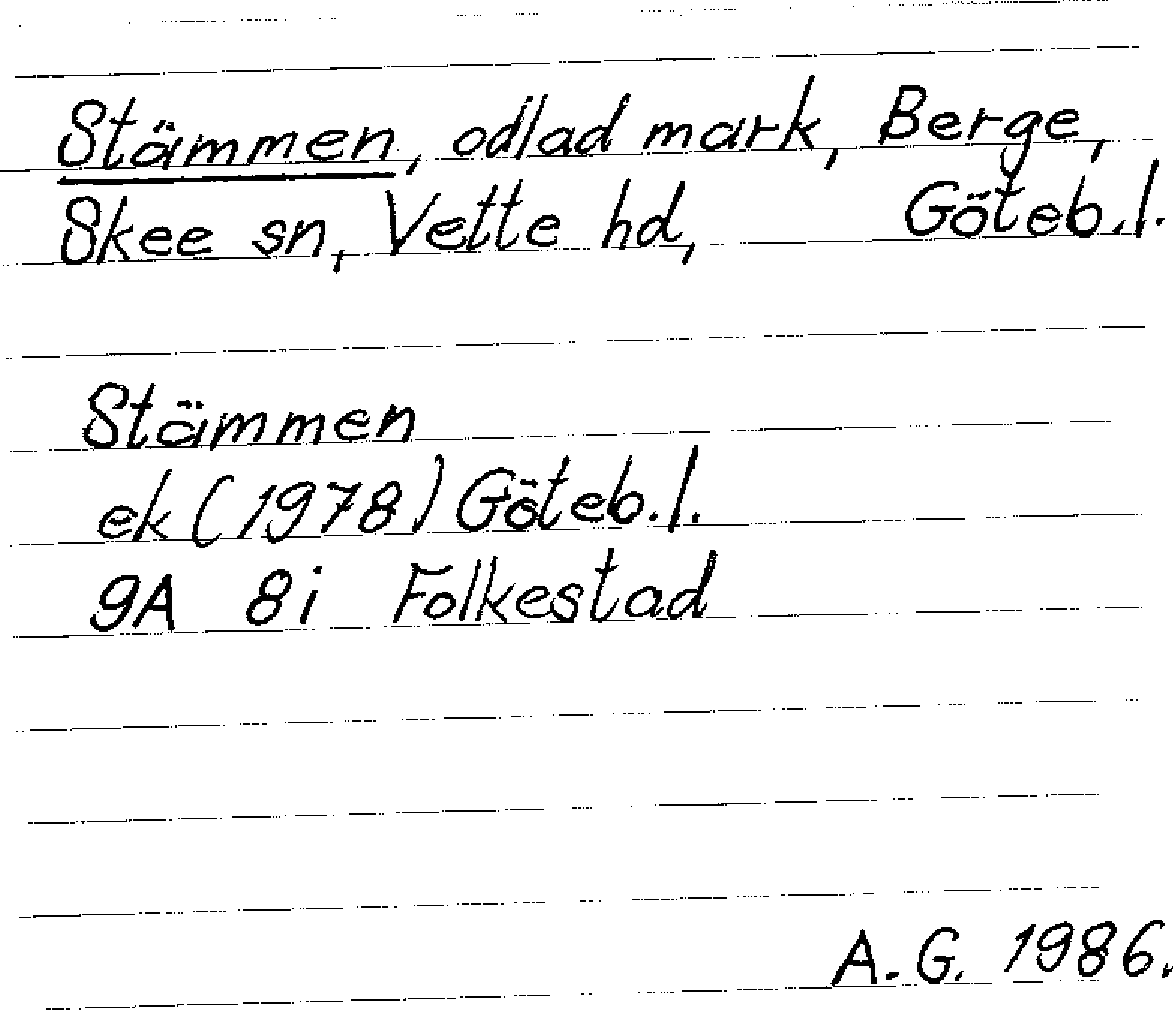 Stämmen, odlad mark, Berge,
Skee sn, Vette hd, Göteb.l.
Stämmen
ek (1978) Göteb.l.
9A 8i Folkestad
A.G. 1986.